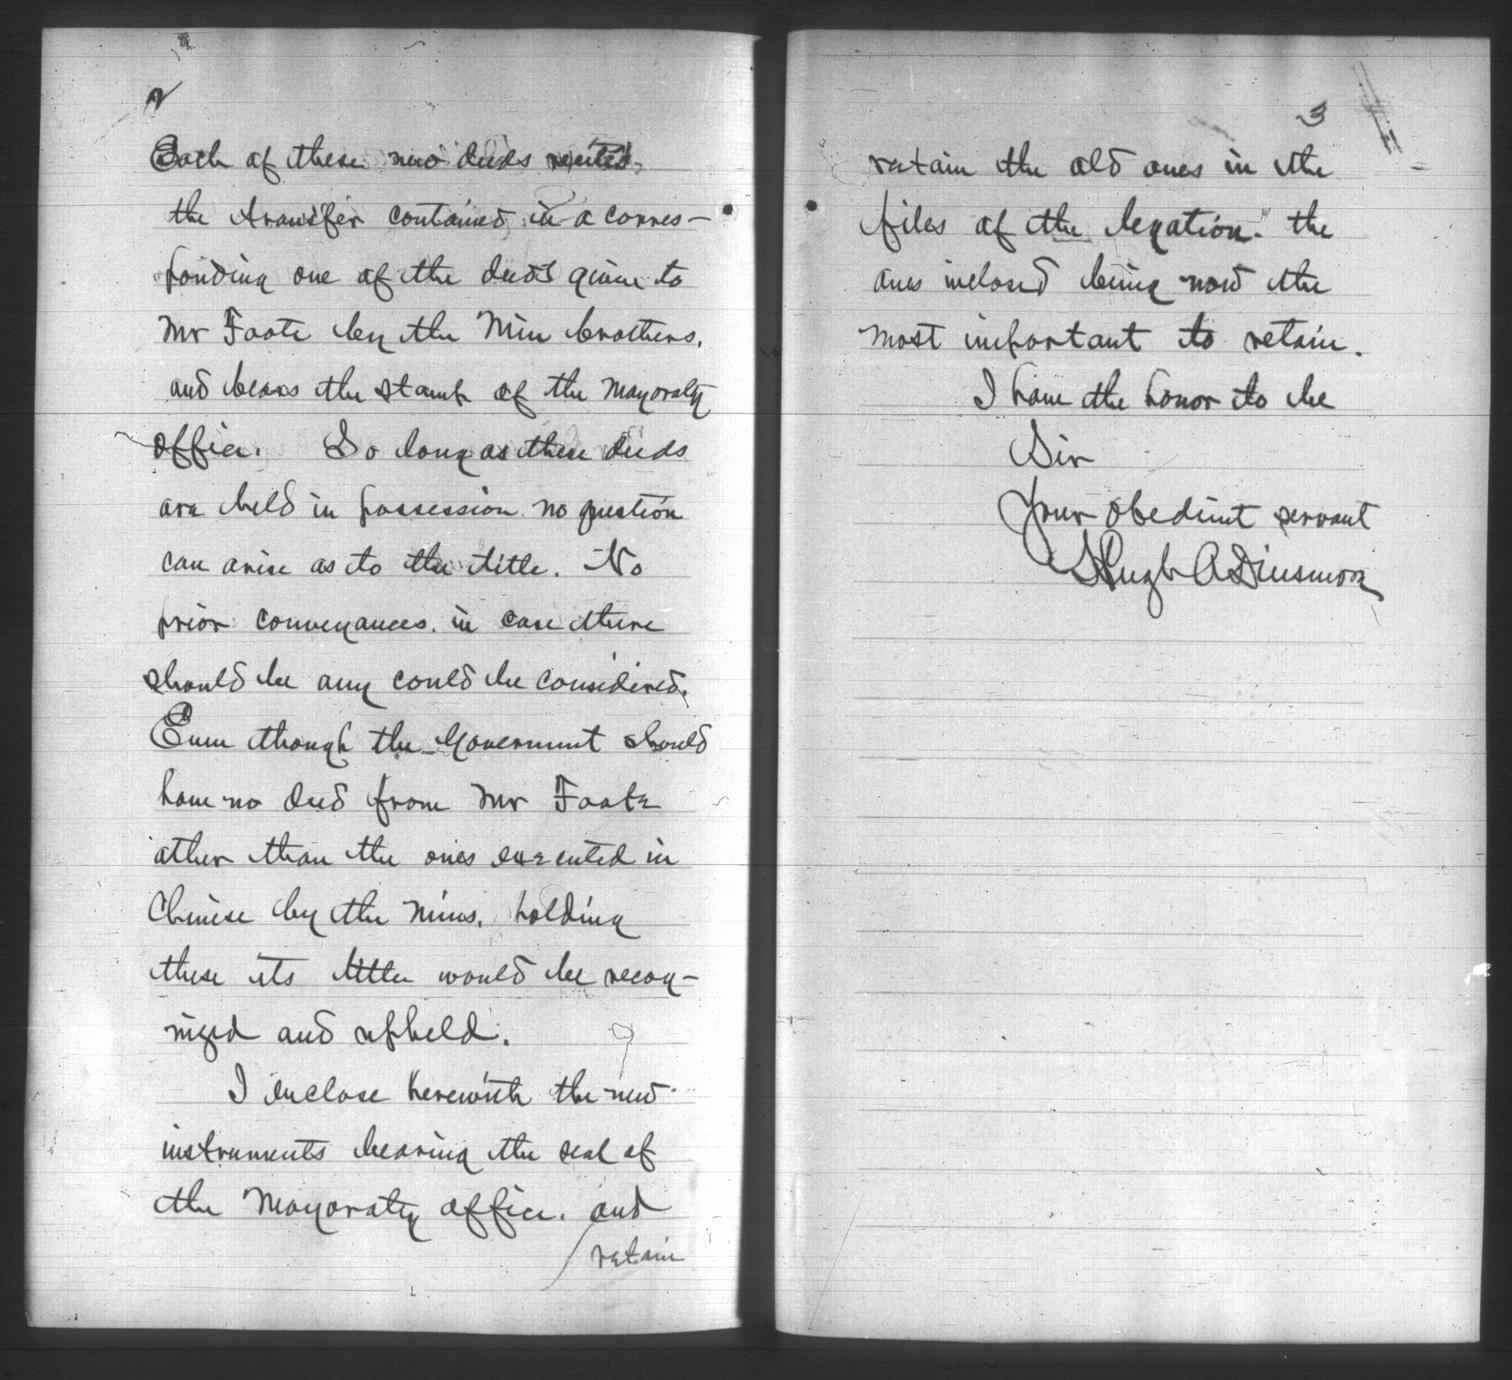 2
Each of these new deeds recites,
the transfer contained in a corres-
ponding one of the deeds given to
Mr Foote by the Min brothers,
and bears the stamp of the Mayoralty
office. So long as these deeds
are held in possession no question
can arise as to the title. No
prior conveyances in case there
should be any could be considered.
Even though the Government should
have no deed from Mr Foote
other than the ones executed in
Chinese by the Mins, holding
these its title would be recog-
nized and upheld.
I enclose herewith the new
instruments bearing the seal of
the Mayoralty office, and
retain
3
retain the old ones in the
files of the legation. the
ones inclosed being now the
most important to retain.
I have the honor to be
Sir
Your obedient servant
Hugh A Dinsmore